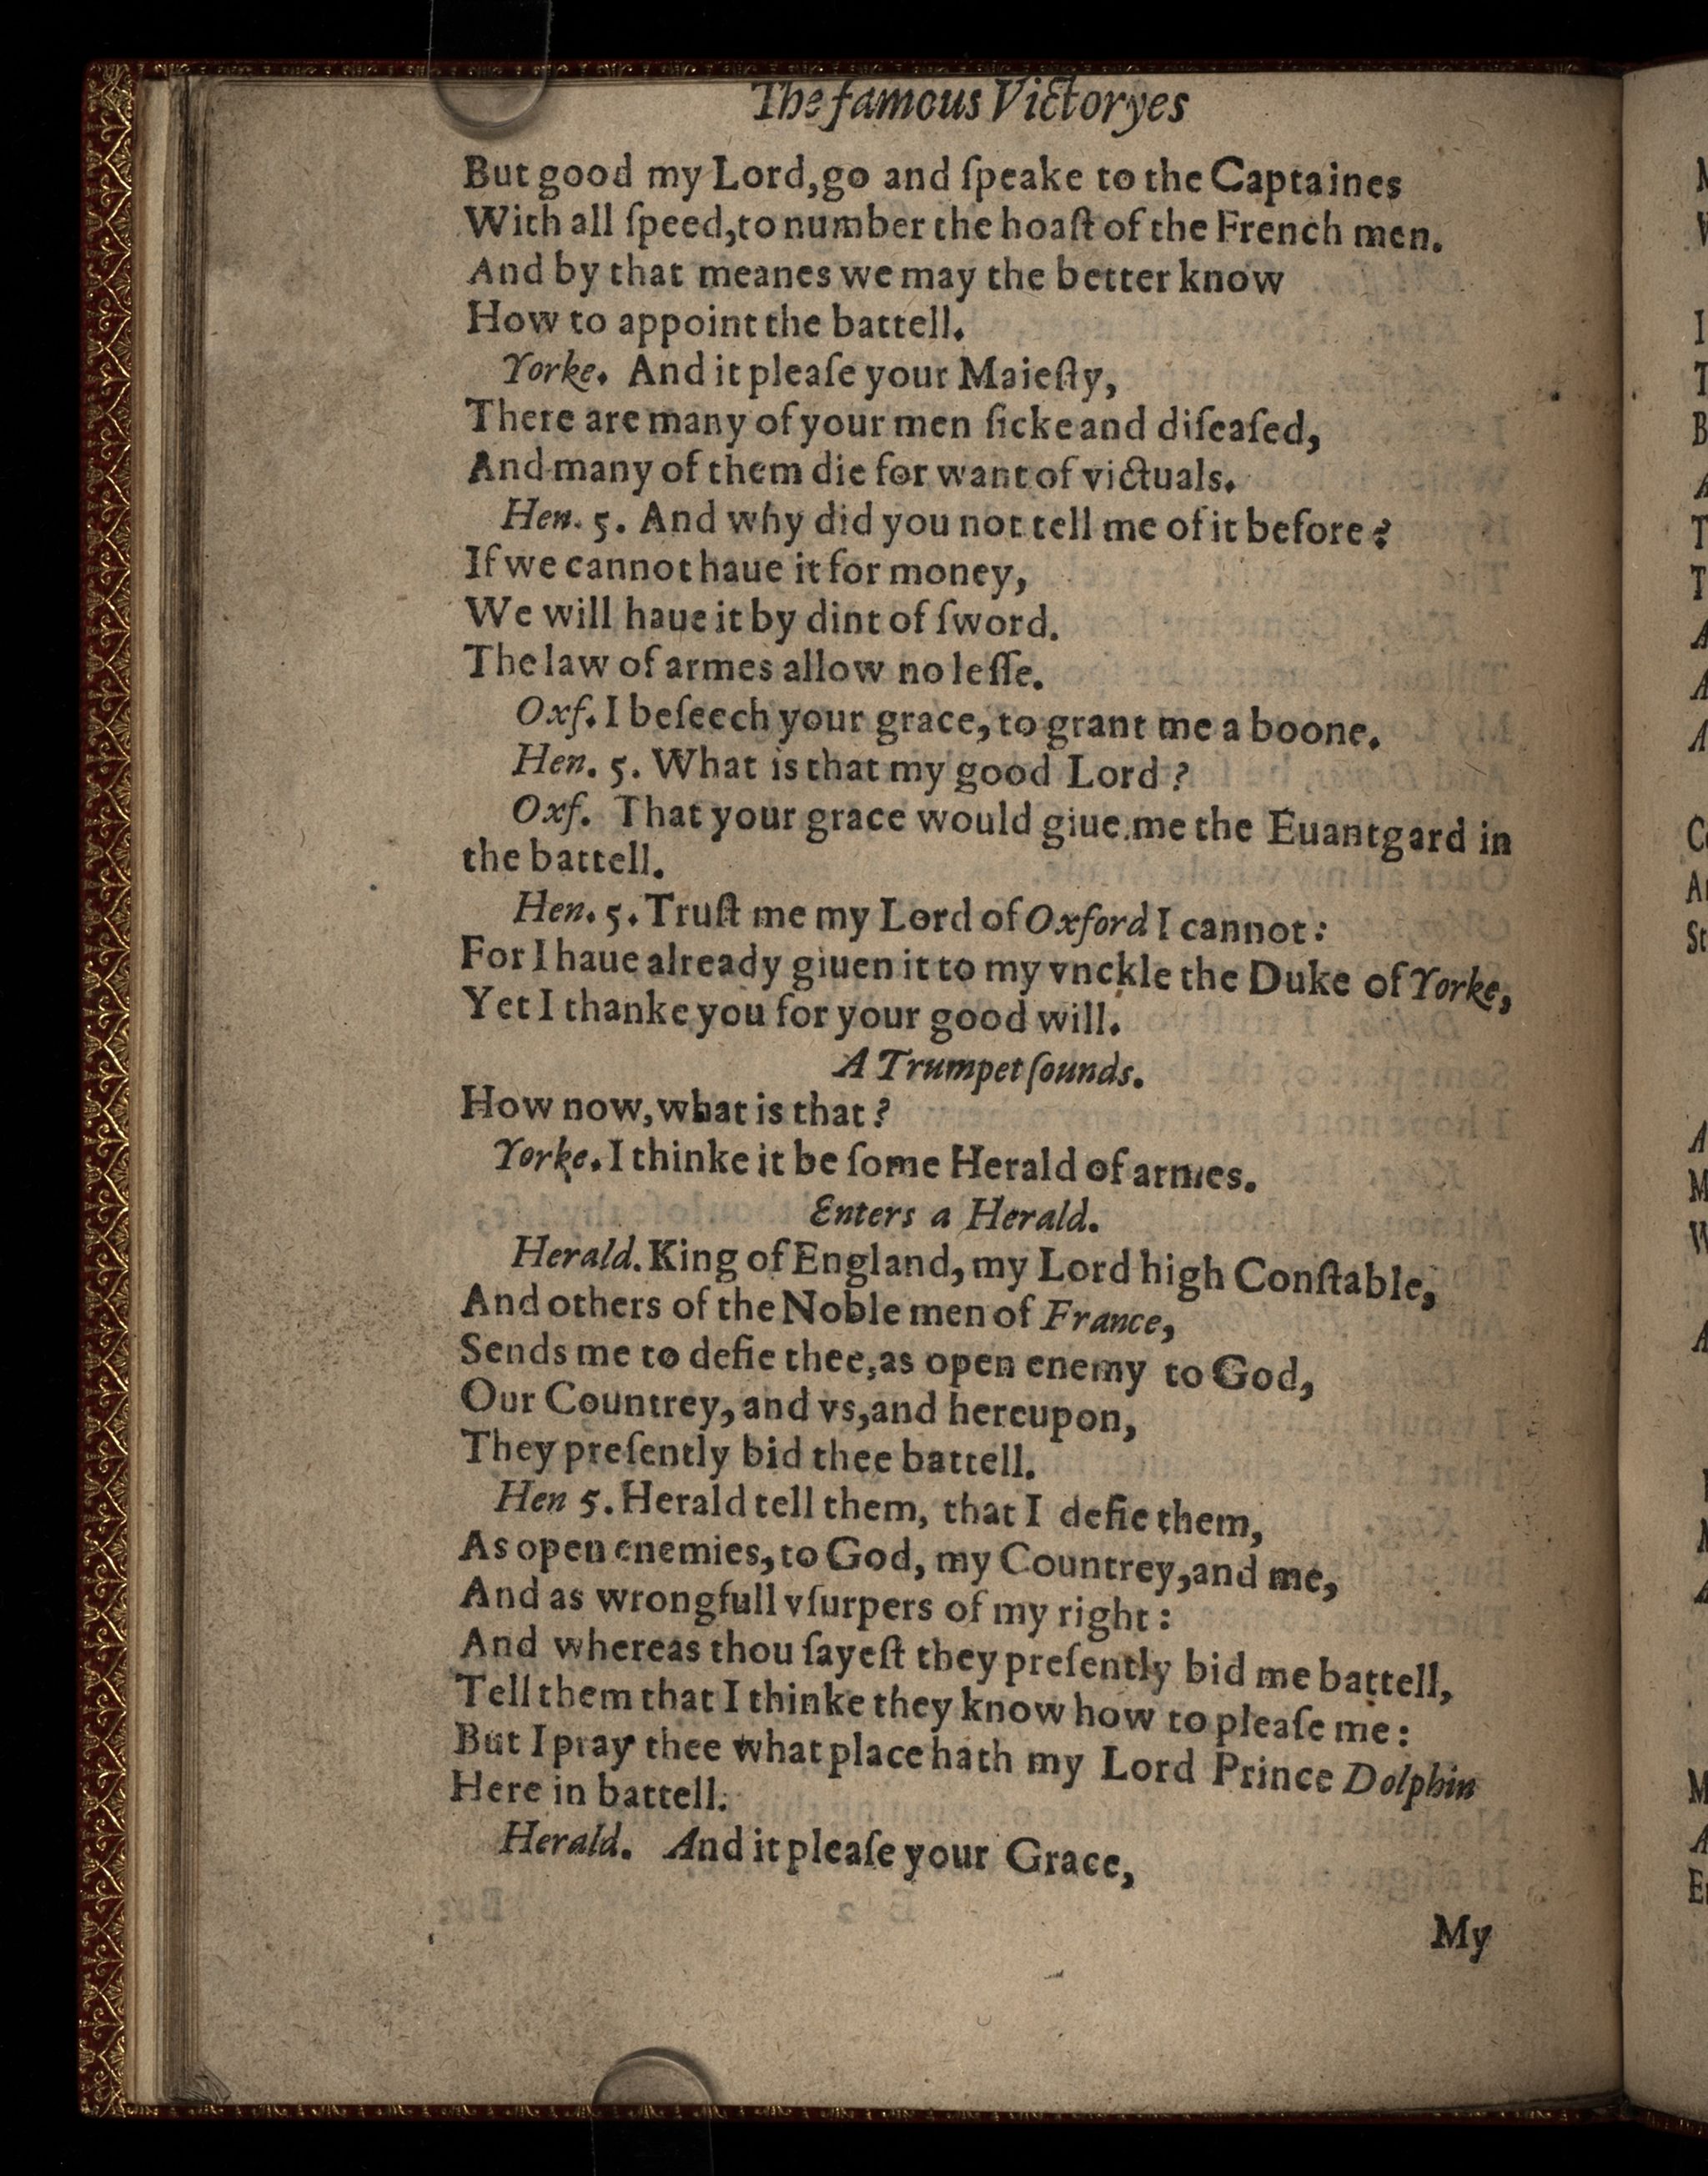 The famous Victoryes
But good my Lord,go and ſpeake to the Captaines
With all ſpeed,to number the hoaſt of the French men.
And by that meanes we may the better know
How to appoint the battell.
Yorke. And it pleaſe your Maieſty,
There are many of your men ſicke and diſeaſed,
And many of them die for want of victuals.
Hen. 5. And why did you not tell me of it before?
If we cannot haue it for money,
We will haue it by dint of ſword.
The law of armes allow no leſſe.
Oxf. I beſeech your grace, to grant me a boone.
Hen. 5. What is that my good Lord?
Oxf. That your grace would giue me the Euantgard in
the battell.
Hen. 5. Truſt me my Lord of Oxford I cannot:
For I haue already giuen it to my vnckle the Duke of Yorke,
Yet I thanke you for your good will.
A Trumpet ſounds.
How now,what is that?
Yorke. I thinke it be ſome Herald of armes.
Enters a Herald.
Herald. King of England, my Lord high Conſtable,
And others of the Noble men of France,
Sends me to defie thee,as open enemy to God,
Our Countrey, and vs,and hereupon,
They preſently bid thee battell.
Hen 5. Herald tell them, that I defie them,
As open enemies, to God, my Countrey,and me,
And as wrongfull vſurpers of my right:
And whereas thou ſayeſt they preſently bid me battell,
Tell them that I thinke they know how to pleaſe me:
But I pray thee what place hath my Lord Prince Dolphin
Here in battell.
Herald. And it pleaſe your Grace,
My